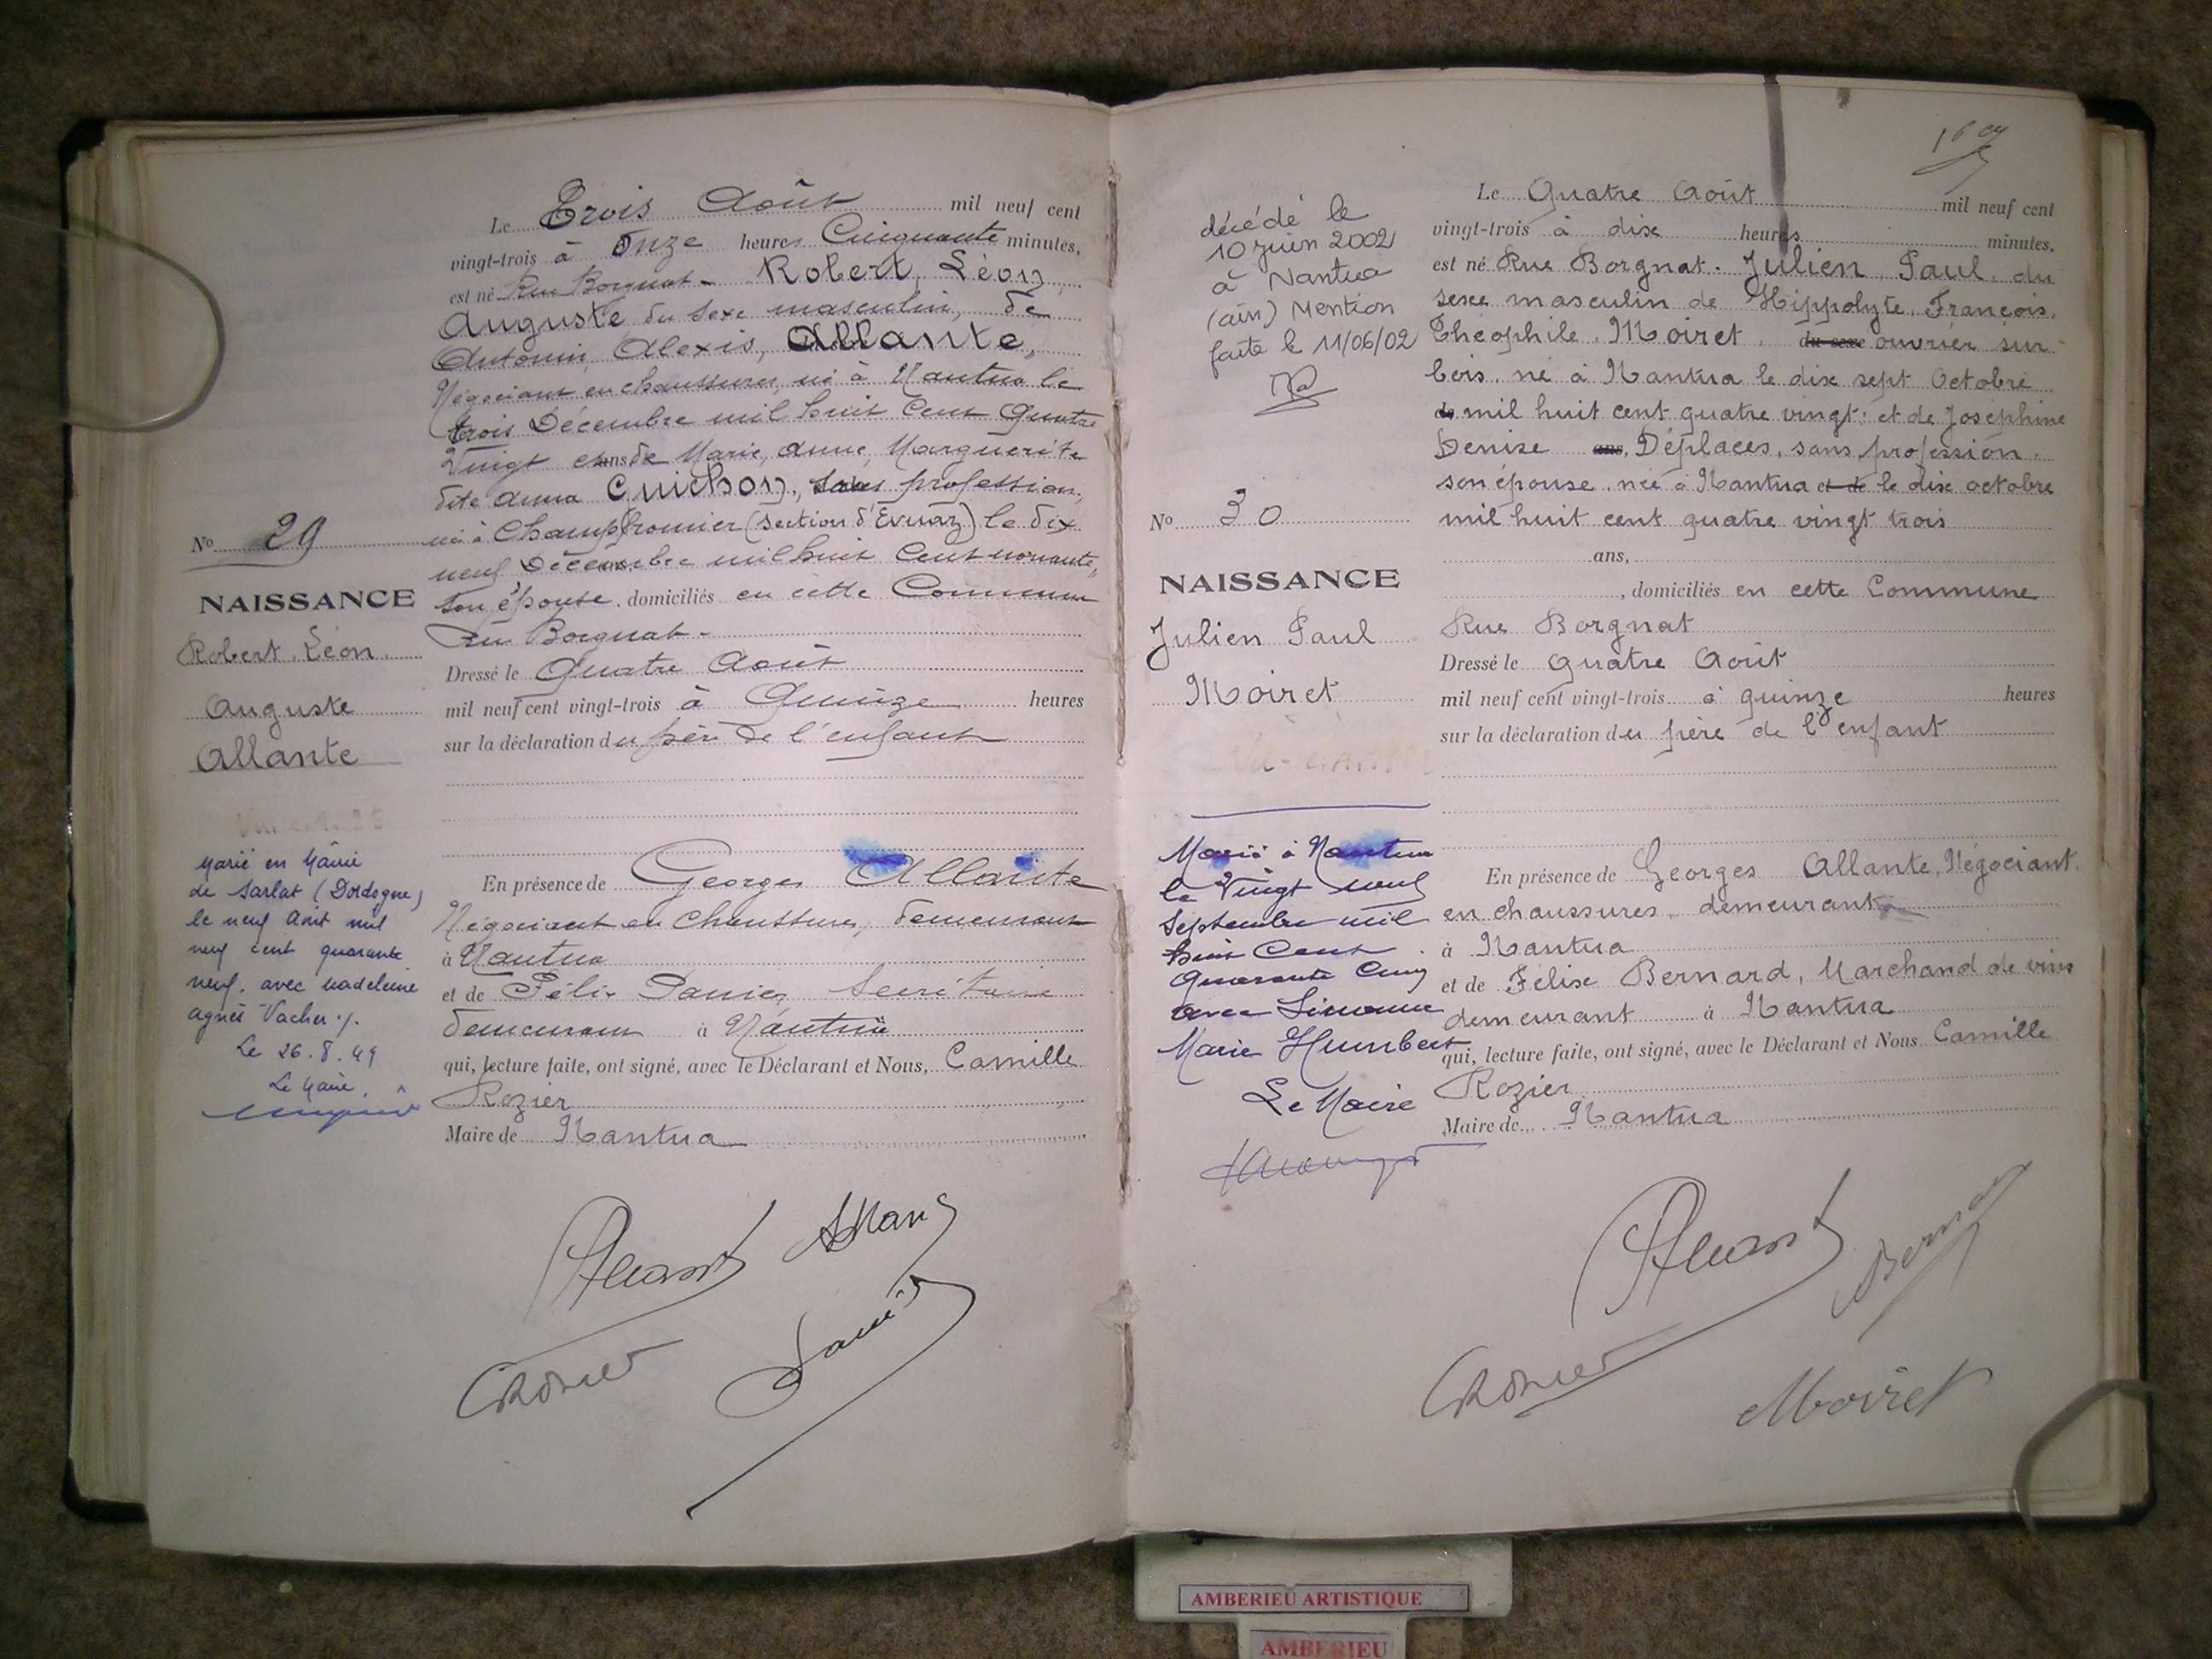 Le Trois Août mil neuf cent
vingt-trois à Onze heures Cinquante minutes,
est né Rue Borgnat - Robert, Léon,
Auguste du sexe masculin, de
Antonin, Alexis, Allante,
Négociant en chaussures, né à Nantua le
trois Décembre mil huit Cent Quatre
Vingt ans de Marie, Anne, Marguerite
dite Anna Cuichon, sans profession,
née à Champfromier (section d'Evuaz) le dix
neuf Décembre mil huit Cent nonante,
son épouse, domiciliés en cette Commune
Rue Borgnat -
Dressé le Quatre Août
mil neuf cent vingt-trois à Quinze heures
sur la déclaration du père de l'enfant
En présence de Georges Allante
Négociant en Chaussures, demeurant
à Nantua
et de Félix Panier Secrétaire
demeurant à Nantua
qui, lecture faite, ont signé, avec le Déclarant et Nous, Camille
Rozier
Maire de Nantua
No 29
NAISSANCE
Robert, Léon
Auguste
Allante
Marié en Mairie
de Sarlat (Dordogne)
le neuf Août mil
neuf cent quarante
neuf, avec Madeleine
agnès Vacher ./.
Le 26.8.49
Le Maire,
décédé le
10 juin 2002
à Nantua
(ain) Mention
faite le 11/06/02
No 30
NAISSANCE
Julien Paul
Moiret
Marié à Nantua
le Vingt neuf
Septembre mil
huit Cent
Quarante Cinq
avec Simonne
Marie Humbert
Le Maire
Le Quatre Août mil neuf cent
vingt-trois à dix heures minutes,
est né Rue Borgnat. Julien, Paul, du
sexe masculin de Hippolyte, François,
Théophile, Moiret, du sexe ouvrier sur
bois, né à Nantua le dix sept Octobre
de mil huit cent quatre vingt: et de Joséphine
Denise ans, Déplaces, sans profession,
son épouse, née à Nantua et de le dix octobre
mil huit cent quatre vingt trois
ans,
, domiciliés en cette Commune
Rue Borgnat
Dressé le Quatre Août
mil neuf cent vingt-trois à quinze heures
sur la déclaration du père de l'enfant
En présence de Georges Allante, Négociant
en chaussures, demeurant
à Nantua
et de Félix Bernard, Marchand de vins
demeurant à Nantua
qui, lecture faite, ont signé, avec le Déclarant et Nous Camille
Rozier
Maire de Nantua
Bernard
Moiret
AMBERIEU ARTISTIQUE
AMBERIEU